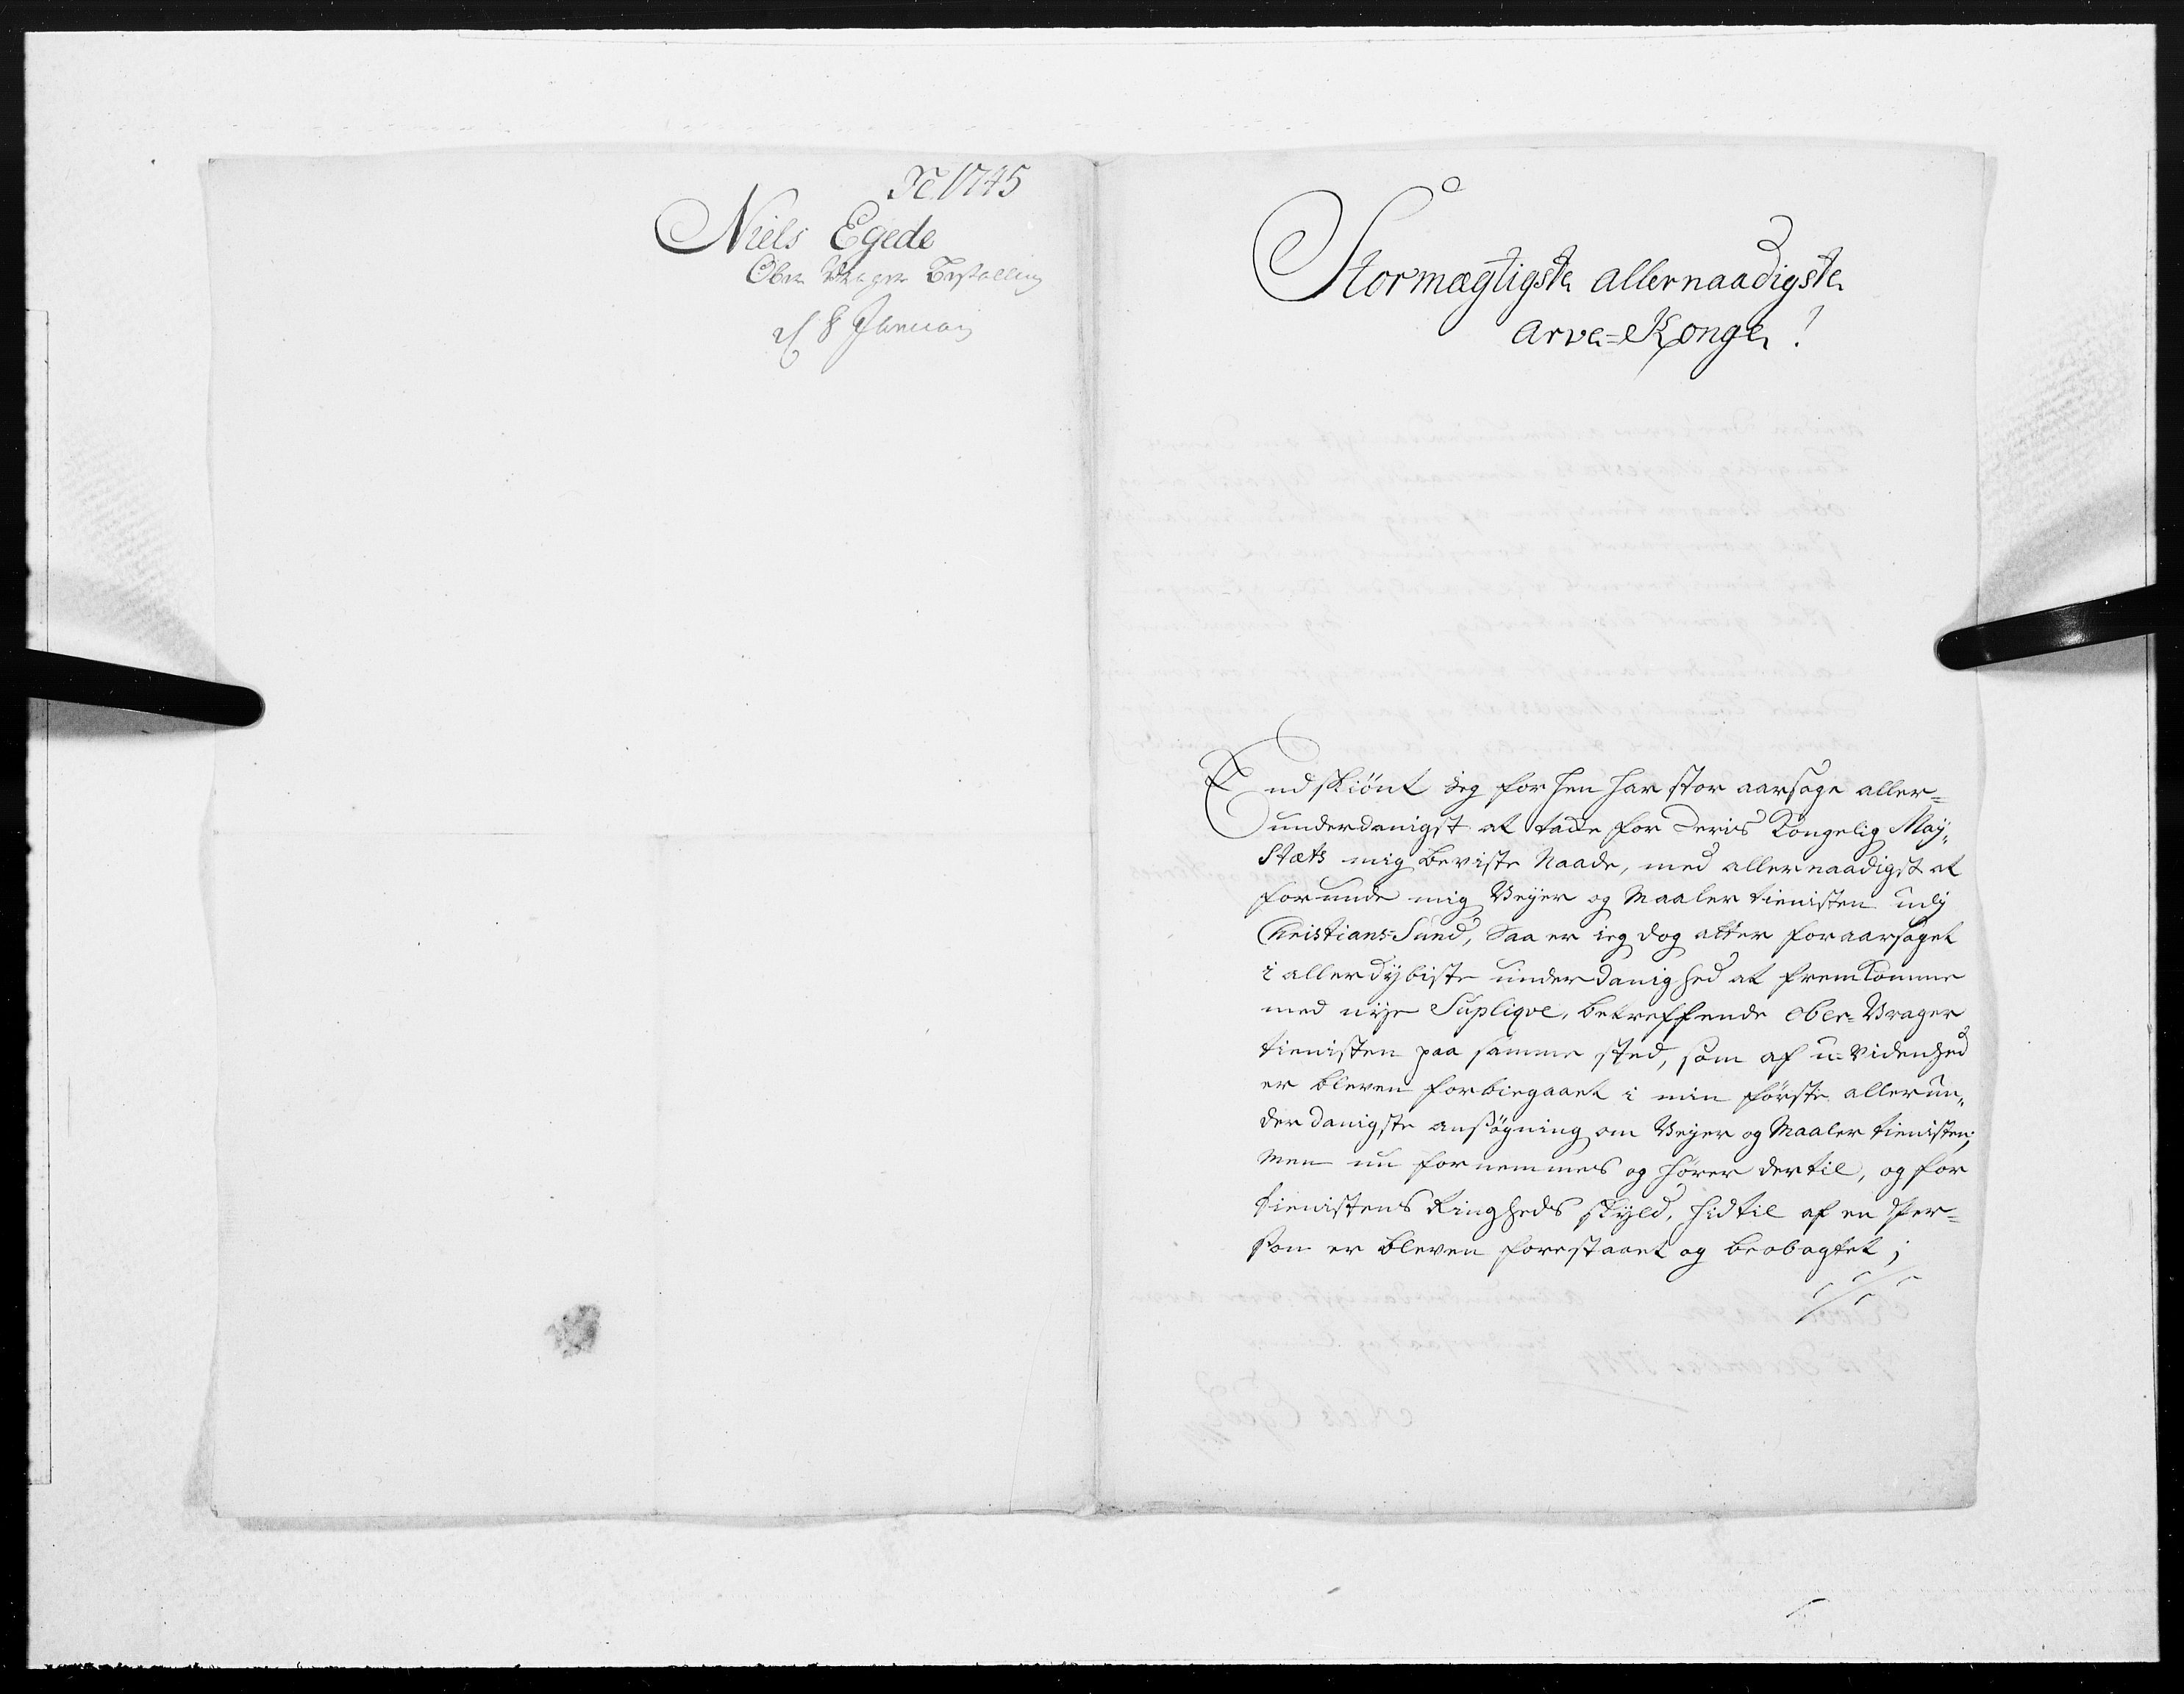 1745
Niels Egede
Ober Vrager Bestalling
d 8 Januarij
Stormægtigste allernaadigste
Arve=Konge!
Endskiönt Jeg forhen har stor aarsage aller=
underdanigst at tacke for Deris Kongelig May„
Stæts mig beviste Naade, med allernaadigst at
forunde mig Veyer og Maaler tienisten udj
Christians=Sund, saa er ieg dog atter foraarsaget
i allerdybiste underdanighed at fremkomme
med nÿe Supliqve, betreffende Ober=Vrager
tienisten paa samme sted, som af u=videnhed
er bleven forbiegaaet i min förste allerun„
derdanigste ansögning om Veyer og Maaler tienisten,
Men nu fornemmes og hörer dertil, og for
tienistens Ringheds skyld, hidtil af en Per=
son er bleven forestaaet og beobagtet;